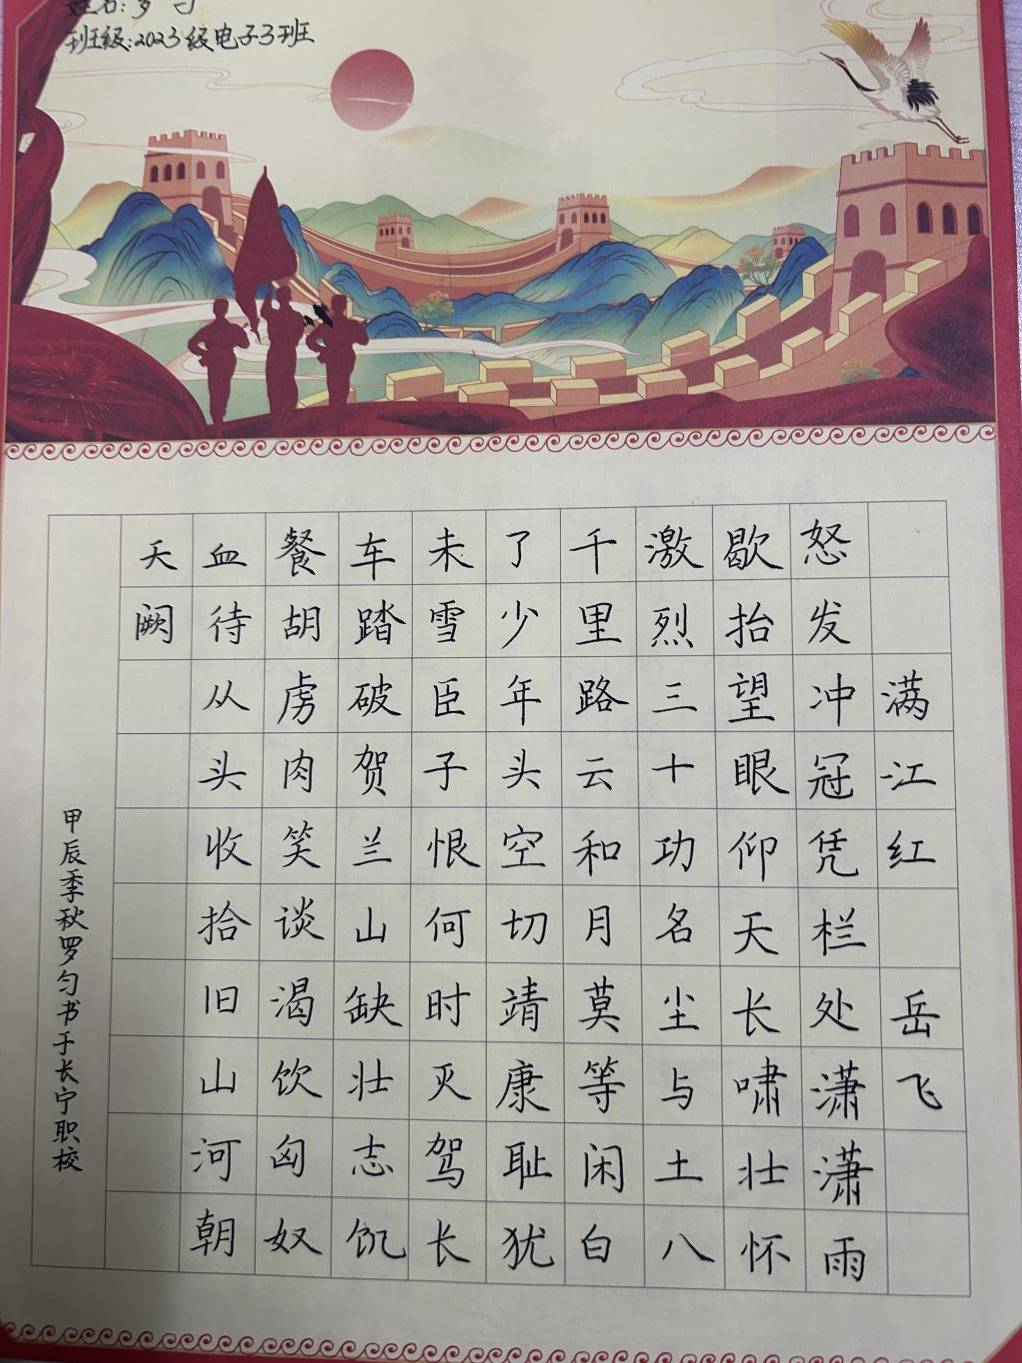 姓名:罗匀
班级:2023级电子3班
满江红 岳飞
怒发冲冠凭栏处潇潇雨
歇抬望眼仰天长啸壮怀
激烈三十功名尘与土八
千里路云和月莫等闲白
了少年头空切靖康耻犹
未雪臣子恨何时灭驾长
车踏破贺兰山缺壮志饥
餐胡虏肉笑谈渴饮匈奴
血待从头收拾旧山河朝
天阙
甲辰季秋罗匀书于长宁职校